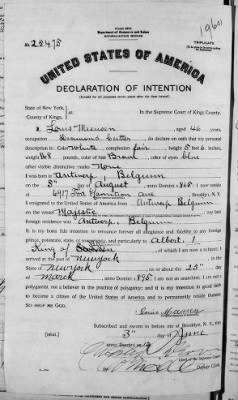 No. 28478
Department of Commerce and Labor
TRIPLICATE
UNITED STATES OF AMERICA
DECLARATION OF INTENTION
State of New York,
County of Kings,
In the Supreme Court of Kings County.
I, Louis, aged 46 years,
occupation Diamond Cutter, do declare on oath that my personal
description is: Color white, complexion fair, height 5 feet inches,
weight 168 pounds, color of hair Brown, color of eyes blue
other visible distinctive marks None
I was born in Antwerp, Belgium
on the 5 day of August, anno Domini; I now reside
at 6917 Ft Hamilton ave, Brooklyn, N.Y.
I emigrated to the United States of America from Antwerp Belgium
on the vessel Majestic; my last
foreign residence was Antwerp, Belgium.
It is my bona fide intention to renounce forever all allegiance and fidelity to any foreign
prince, potentate, state, or sovereignty, and particularly to Albert 1
King of, of which I am now a subject; I
arrived at the port of new york, in the
State of new york, on or about the 25 day
of march, anno Domini; I am not an anarchist; I am not a
polygamist nor a believer in the practice of polygamy; and it is my intention in good faith
to become a citizen of the United States of America and to permanently reside therein:
SO HELP ME GOD.
Louis
Subscribed and sworn to before me at Brooklyn, N.Y., this
[SEAL] 3 day of June
anno Domini 19